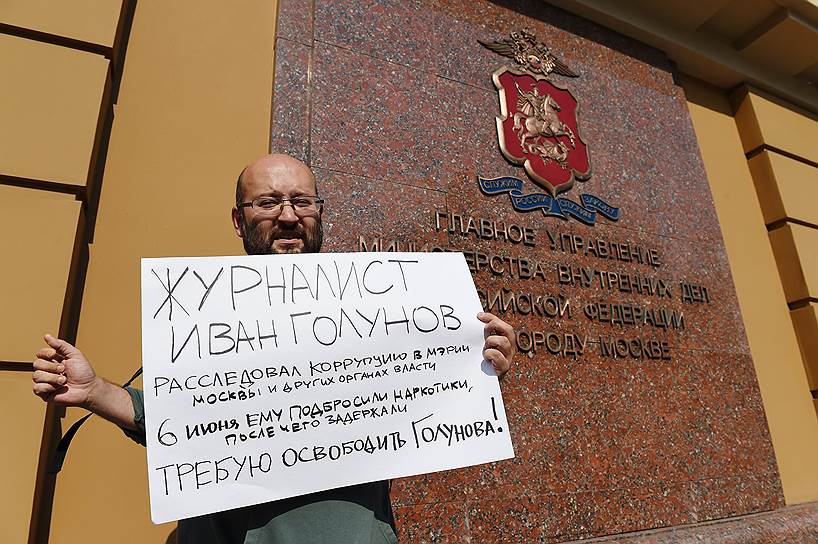 ЖУРНАЛИСТ
ИВАН ГОЛУНОВ
РАССЛЕДОВАЛ КОРРУПЦИЮ В МЭРИИ
МОСКВЫ И ДРУГИХ ОРГАНАХ ВЛАСТИ
6 ИЮНЯ ЕМУ ПОДБРОСИЛИ НАРКОТИКИ,
ПОСЛЕ ЧЕГО ЗАДЕРЖАЛИ
ТРЕБУЮ ОСВОБОДИТЬ ГОЛУНОВА!
СЛУЖИМ РОССИИ СЛУЖИМ ЗАКОНУ
ГЛАВНОЕ УПРАВЛЕНИЕ
МИНИСТЕРСТВА ВНУТРЕННИХ ДЕЛ
СИЙСКОЙ ФЕДЕРАЦИИ
ОРОДУ МОСКВЕ